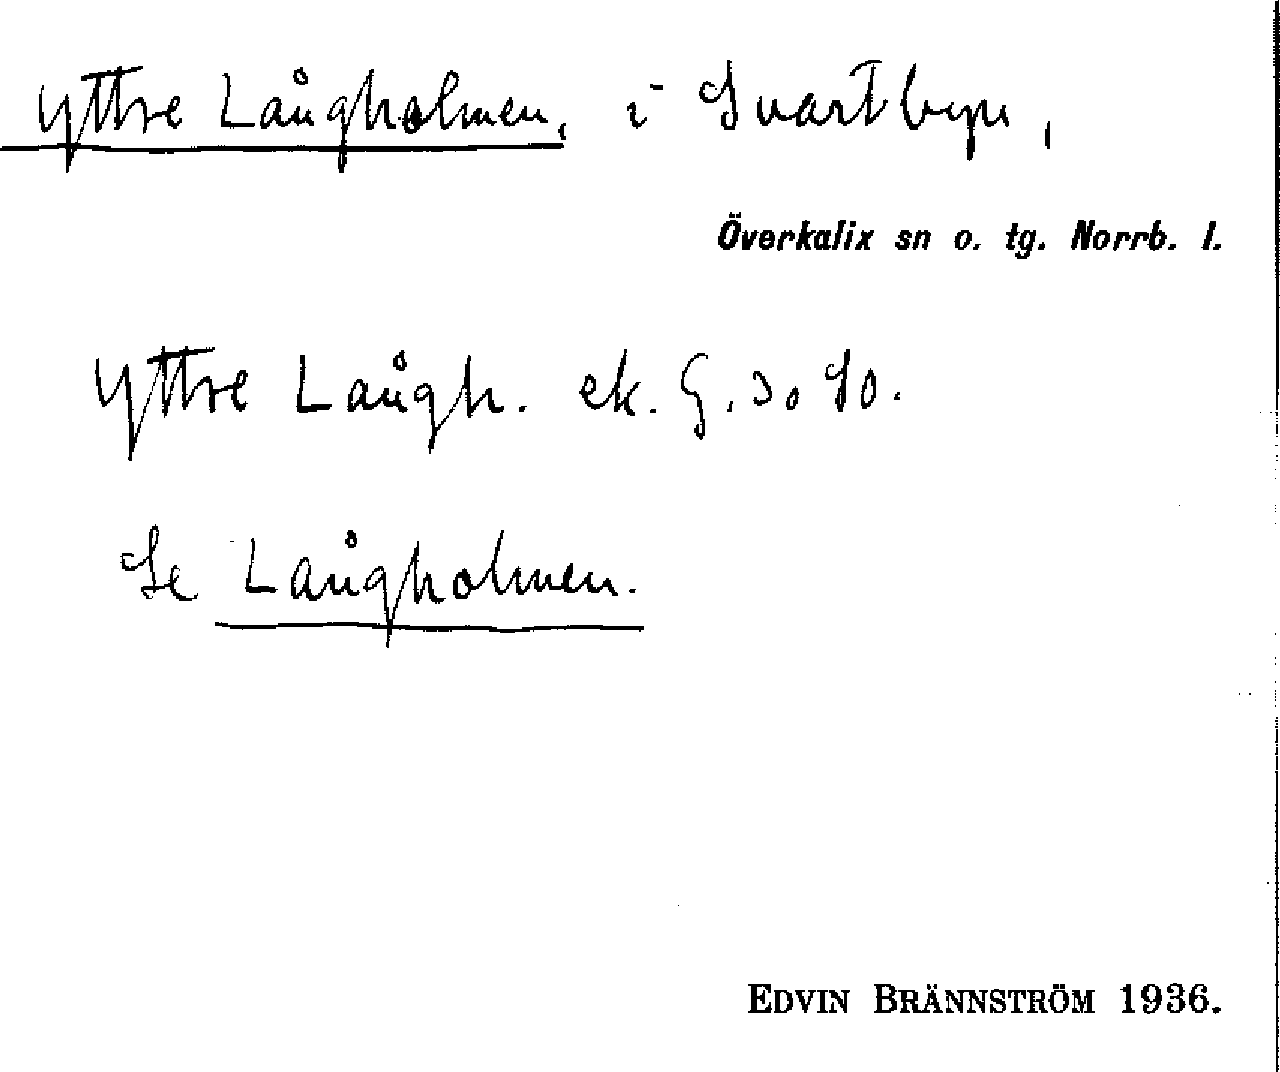 Yttre Långholmen, i Svartbyn,
Överkalix sn o. tg. Norrb. l.
Yttre Långh. ek. G.
Se Långholmen.
EDVIN BRÄNNSTRÖM 1936.